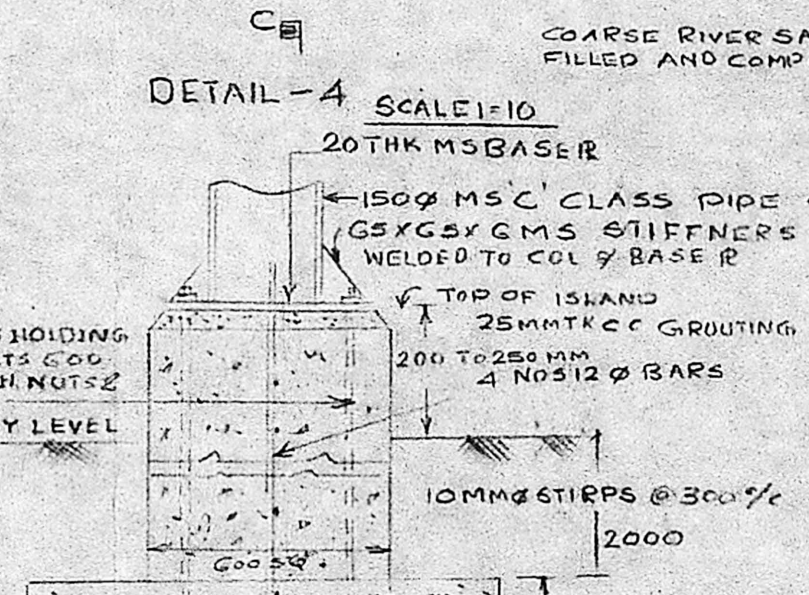 C
COARSE RIVER SA
FILLED AND COMP
DETAIL - 4
SCALE 1=10
20 THK MS BASE PL
150Ø MS 'C' CLASS PIPE
65X65X6MS STIFFNERS
WELDED TO COL & BASE PL
TOP OF ISLAND
25MMTK CC GROUTING
HOLDING
TS 600
H NUTS &
200 TO 250 MM
4 NOS 12 Ø BARS
Y LEVEL
10MMØ STIRPS @ 300 c/c
2000
600 SQ.